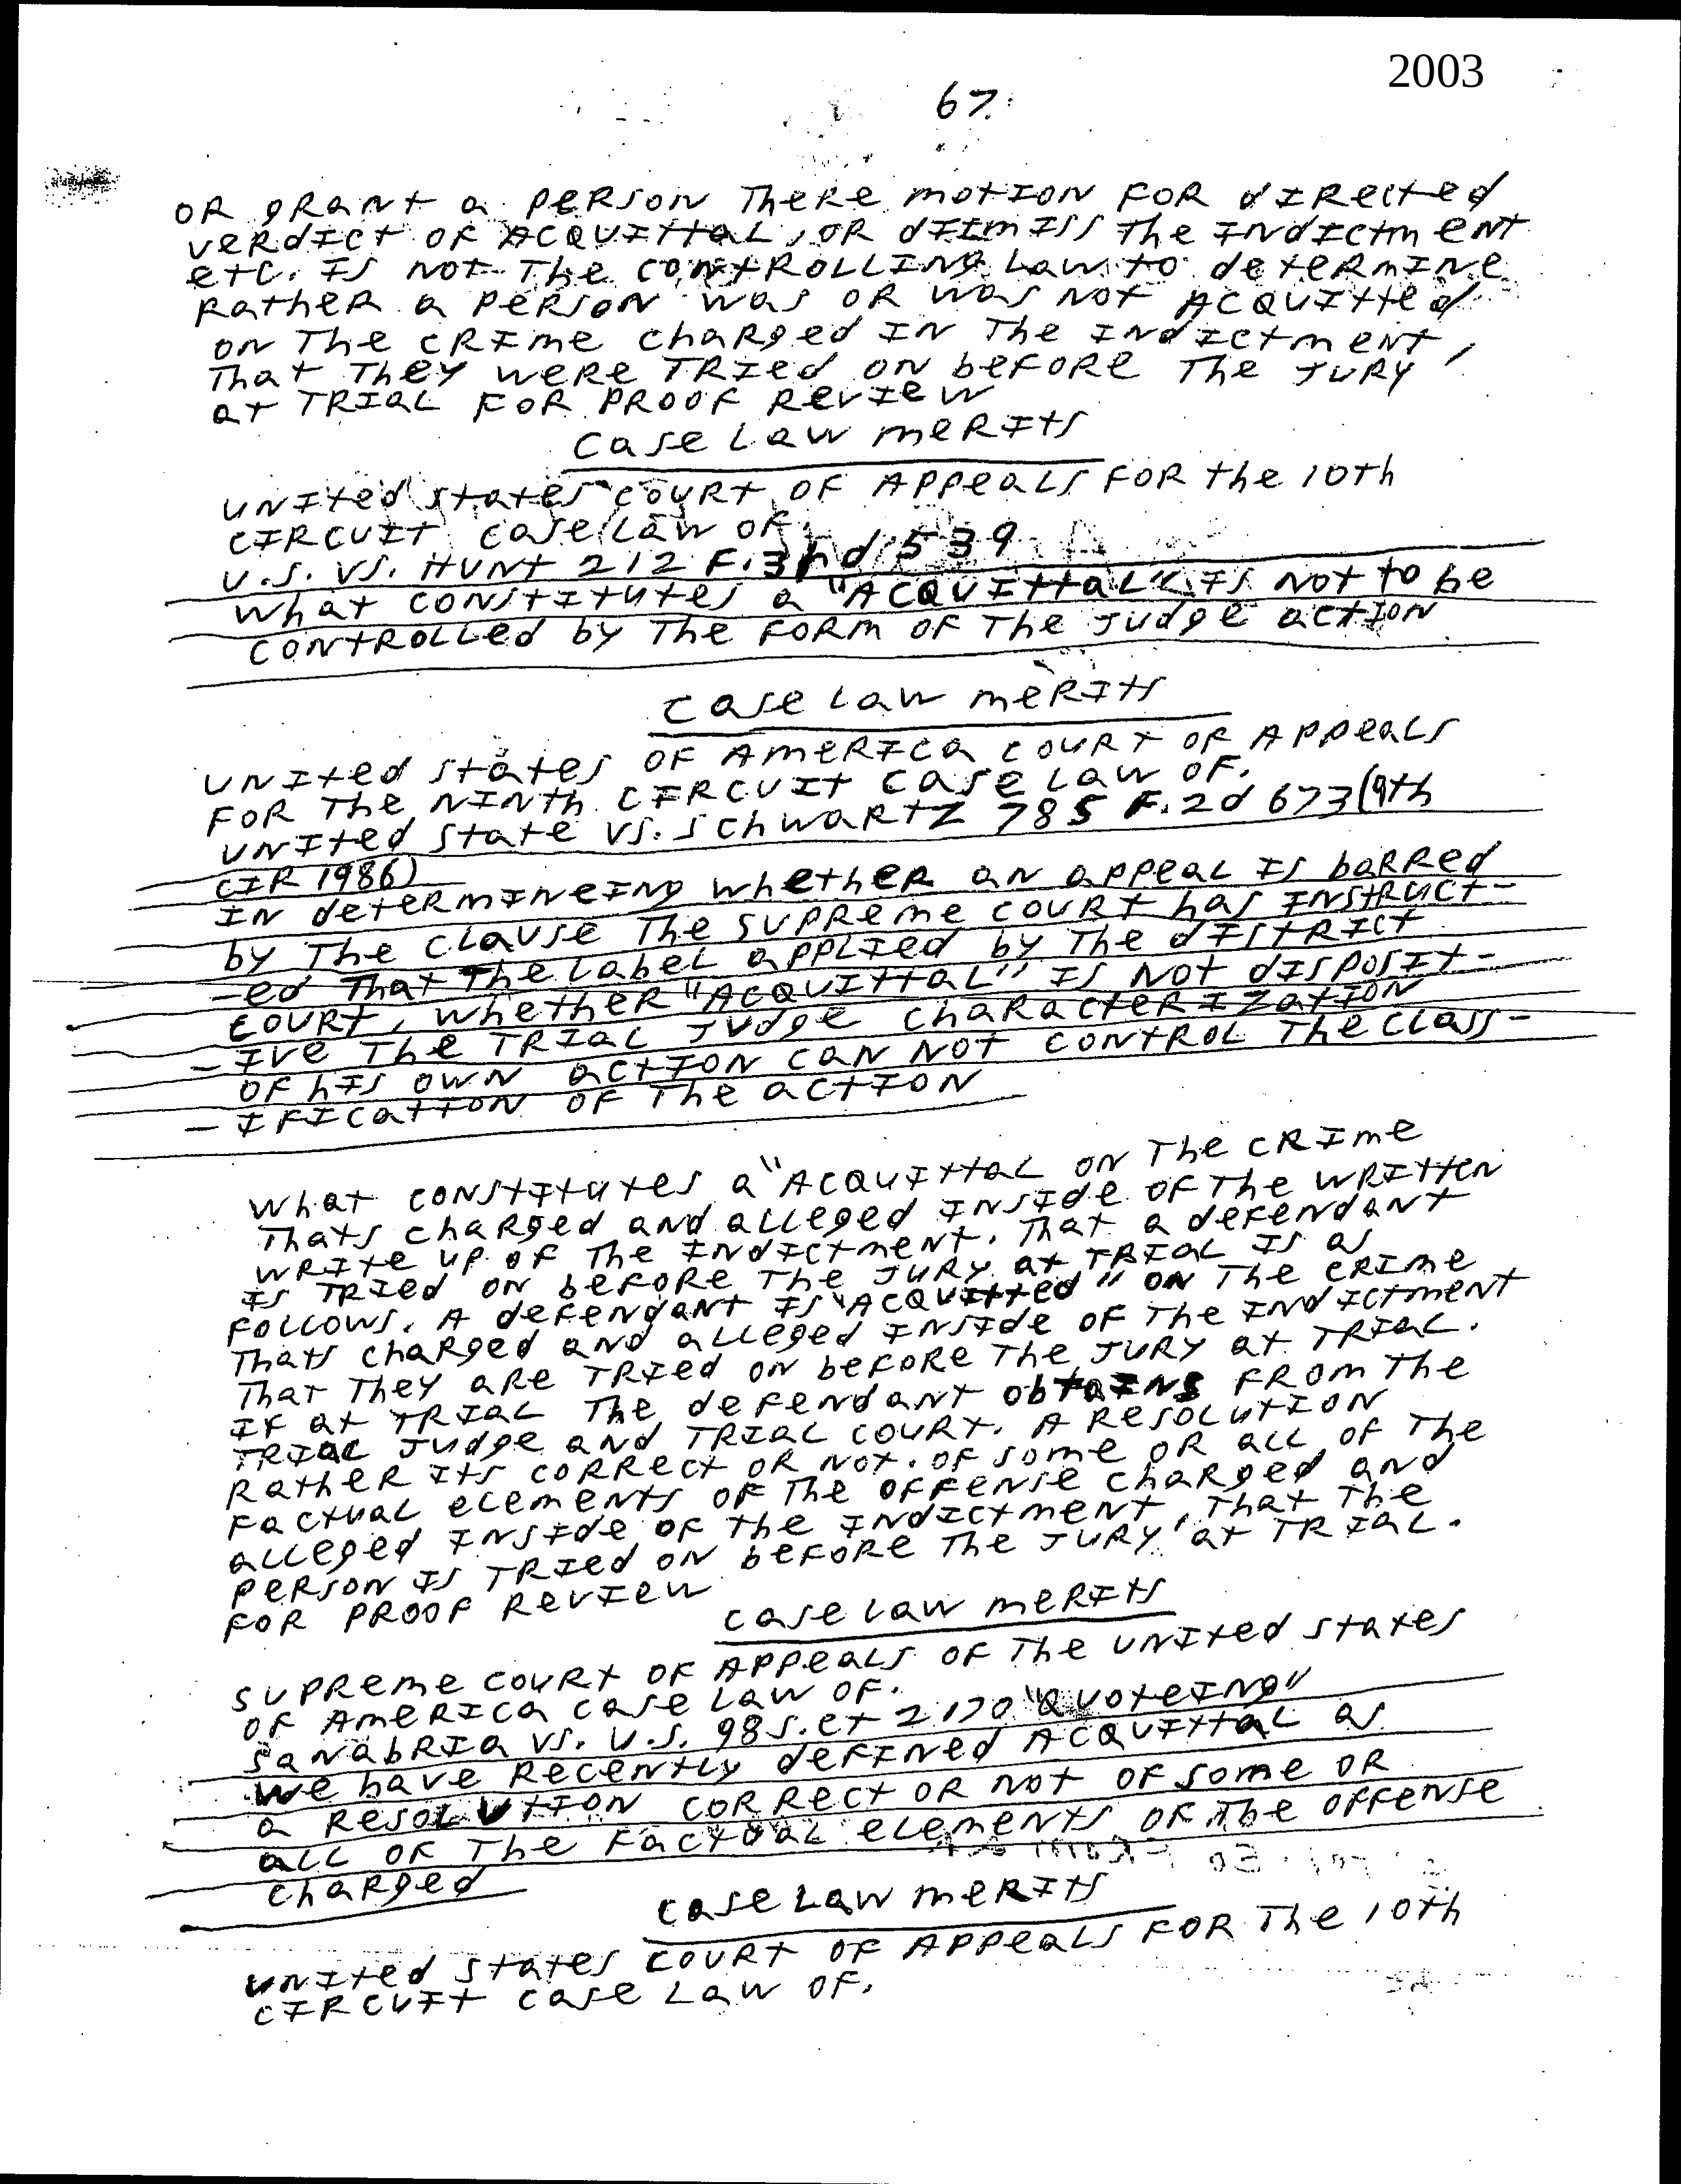 2003
67.
OR GRANT A PERSON THERE MOTION FOR dIRected
VERdICT OF ACQUITTAL, OR dIImISS THE INdICTMENT
etc. IS NOT THE CONTROLLING LAW TO deTERMINE
RATHER A PERSON WAS OR WAS NOT ACQUITTed
ON THE CRIME CHARGED IN THE INDICTMENT,
THAT THEY WERE TRIED ON BEFORE THE JURY
AT TRIAL FOR PROOF REVIEW
CASE LAW MERITS
UNITED STATES COURT OF APPEALS FOR THE 10TH
CIRCUIT CASE LAW OF
U.S. VS. HUNT 212 F.3nd 539
WHAT CONSTITUTES A "ACQUITTAL" IS NOT TO BE
CONTROLLED BY THE FORM OF THE JUDGE ACTION
CASE LAW MERITS
UNITED STATES OF AMERICA COURT OF APPEALS
FOR THE NINTH CIRCUIT CASE LAW OF.
UNITED STATE VS. SCHWARTZ 785 F.2d 673 (9TH
CIR 1986)
IN DETERMINEING WHETHER AN APPEAL IS BARRED
BY THE CLAUSE THE SUPREME COURT HAS INSTRUCT-
-ED THAT THE LABEL APPLIED BY THE DISTRICT
COURT, WHETHER "ACQUITTAL" IS NOT DISPOSIT-
-IVE THE TRIAL JUDGE CHARACTERIZATION
OF HIS OWN ACTION CAN NOT CONTROL THE CLASS-
-IFICATION OF THE ACTION
WHAT CONSTITUTES A "ACQUITTAL ON THE CRIME
THATS CHARGED AND ALLEGED INSIDE OF THE WRITTEN
WRITE UP OF THE INDICTMENT. THAT A DEFENDANT
IS TRIED ON BEFORE THE JURY AT TRIAL IS AS
FOLLOWS. A DEFENDANT IS "ACQUITTED" ON THE CRIME
THATS CHARGED AND ALLEGED INSIDE OF THE INDICTMENT
THAT THEY ARE TRIED ON BEFORE THE JURY AT TRIAL.
IF AT TRIAL THE DEFENDANT OBTAINS FROM THE
TRIAL JUDGE AND TRIAL COURT. A RESOLUTION
RATHER ITS CORRECT OR NOT. OF SOME OR ALL OF THE
FACTUAL ELEMENTS OF THE OFFENSE CHARGED AND
ALLEGED INSIDE OF THE INDICTMENT, THAT THE
PERSON IS TRIED ON BEFORE THE JURY AT TRIAL.
FOR PROOF REVIEW
CASE LAW MERITS
SUPREME COURT OF APPEALS OF THE UNITED STATES
OF AMERICA CASE LAW OF.
SANABRIA VS. U.S. 98 S.CT 2170 "QUOTEING"
WE HAVE RECENTLY DEFINED ACQUITTAL AS
A RESOLUTION CORRECT OR NOT OF SOME OR
ALL OF THE FACTUAL ELEMENTS OF THE OFFENSE
CHARGED
CASE LAW MERITS
UNITED STATES COURT OF APPEALS FOR THE 10TH
CIRCUIT CASE LAW OF.